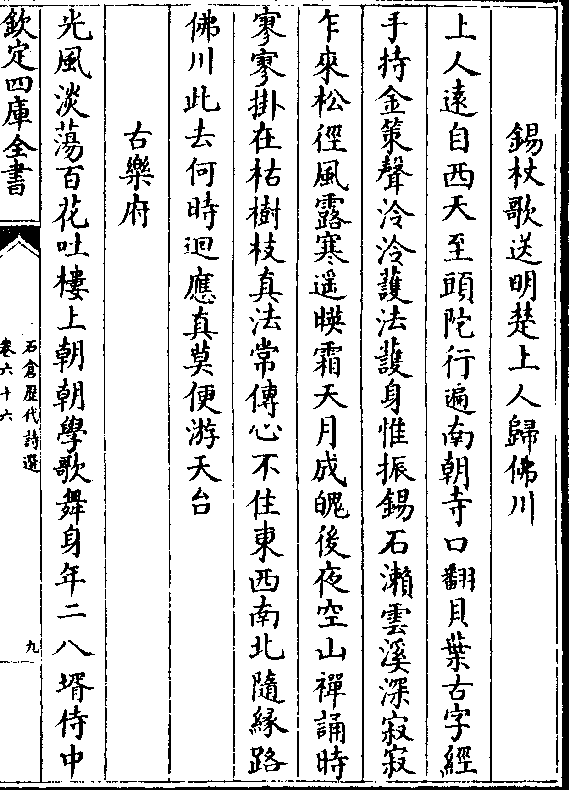 錫杖歌送明楚上人歸佛川
上人遠自西天至頭陀行遍南朝寺口翻貝葉古字經
手持金策聲泠泠護法護身惟振錫石瀨雲溪深寂寂
乍來松徑風露寒遥暎霜天月成魄後夜空山禪誦時
寥寥掛在枯樹枝真法常傳心不住東西南北隨緣路
佛川此去何時迴應真莫便游天台
古樂府
光風淡蕩百花吐樓上朝朝學歌舞身年二八壻侍中
欽定四庫全書
石倉歷代詩選
卷六十六
九